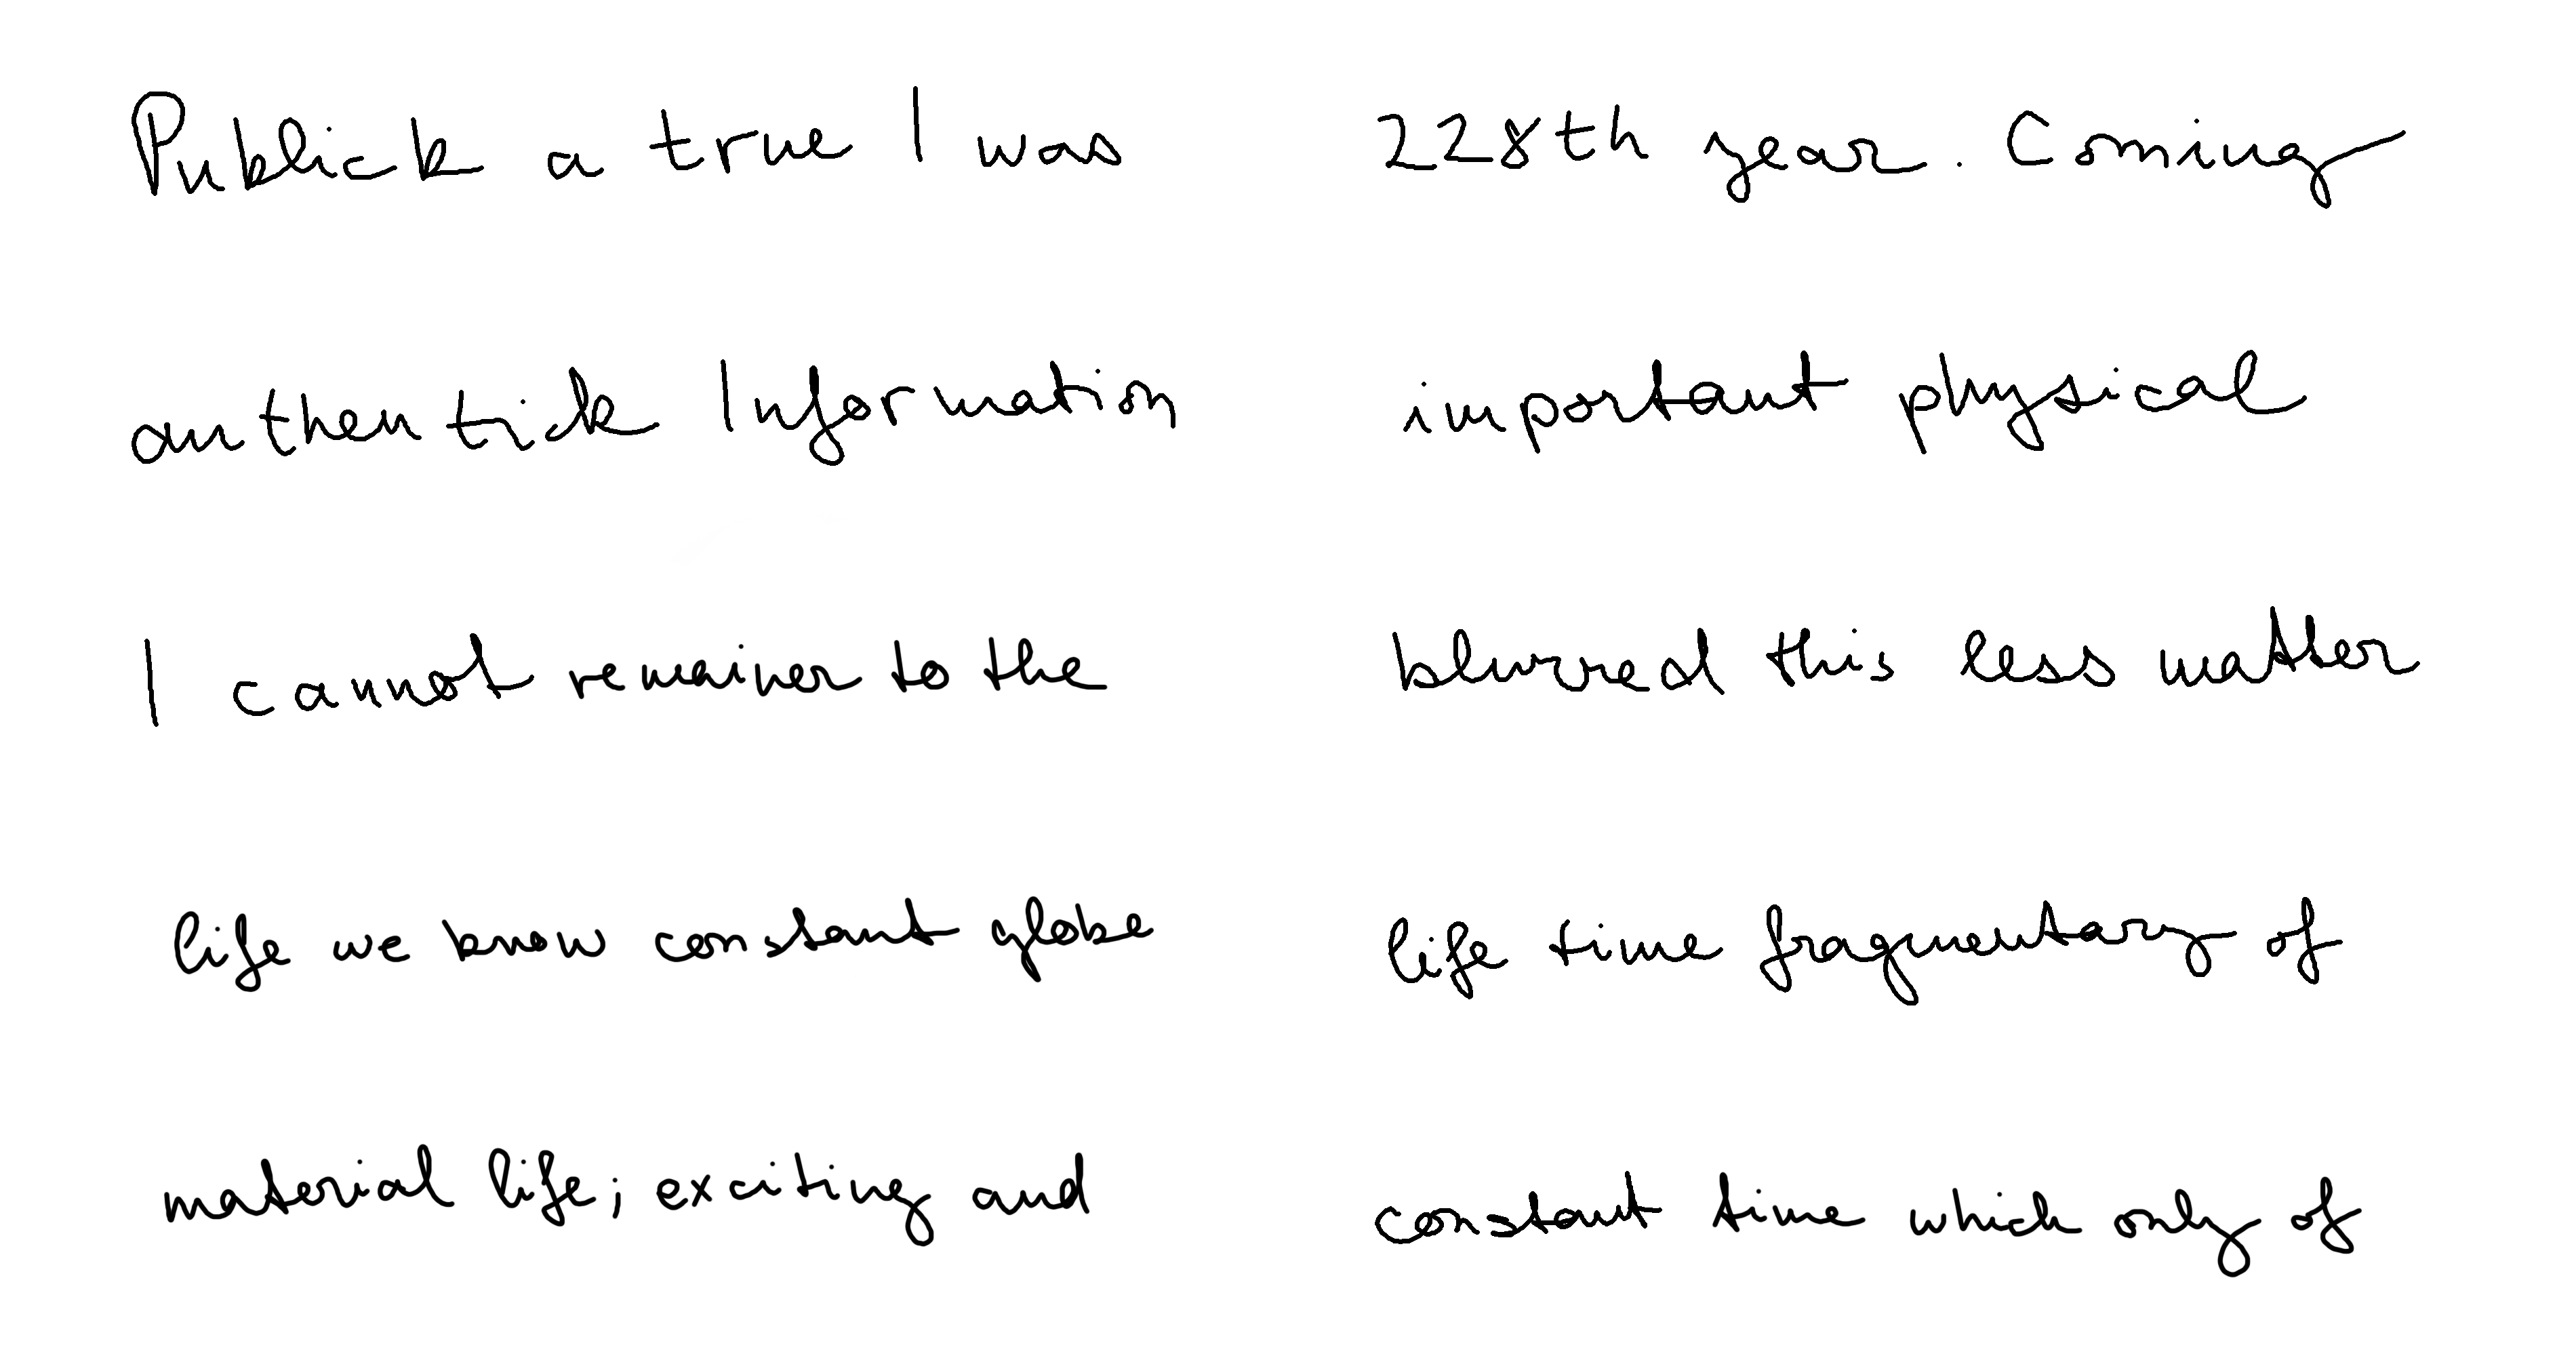 Publick a true I was
authentick Information
I cannot remainer to the
life we know constant globe
material life; exciting and
228th year. Coming
important physical
blurred this less matter
life time fragmentary of
constant time which only of